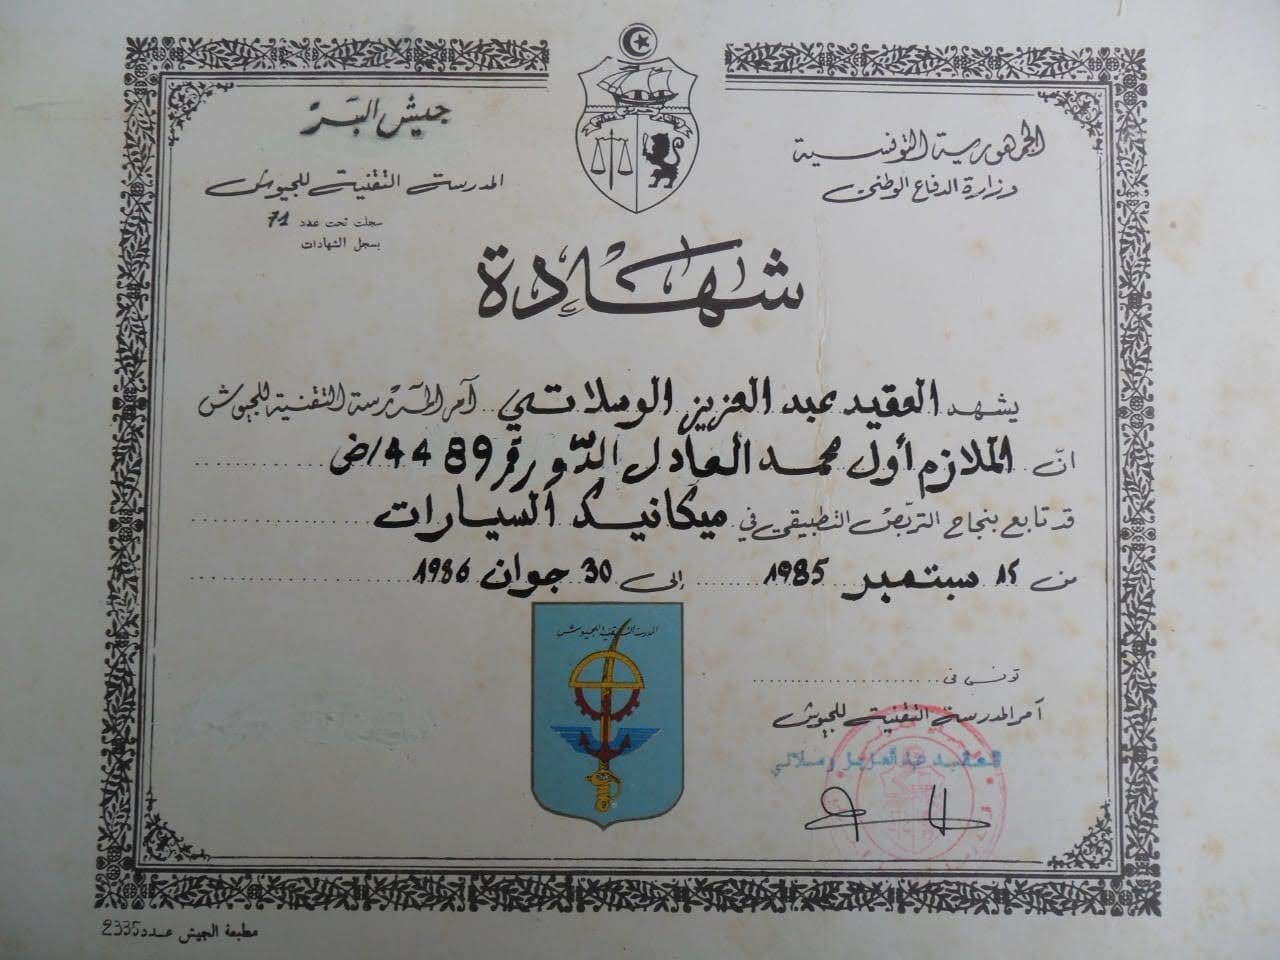 الجمهورية التونسية
وزارة الدفاع الوطني
جيش البَرّ
المدرسة التقنية للجيوش
سجلت تحت عدد 71
بسجل الشهادات
شهادة
يشهد العقيد عبد العزيز الوسلاتي آمر المدرسة التقنية للجيوش
انّ الملازم أول محمد العادل الدّو رقم 4489/ض
قد تابع بنجاح التربّص التطبيقي في ميكانيك السيارات
من 15 سبتمبر 1985 إلى 30 جوان 1986
المدرسة التقنية للجيوش
تونس في
آمر المدرسة التقنية للجيوش
العقيد عبد العزيز وسلاتي
مطبعة الجيش عدد 2335